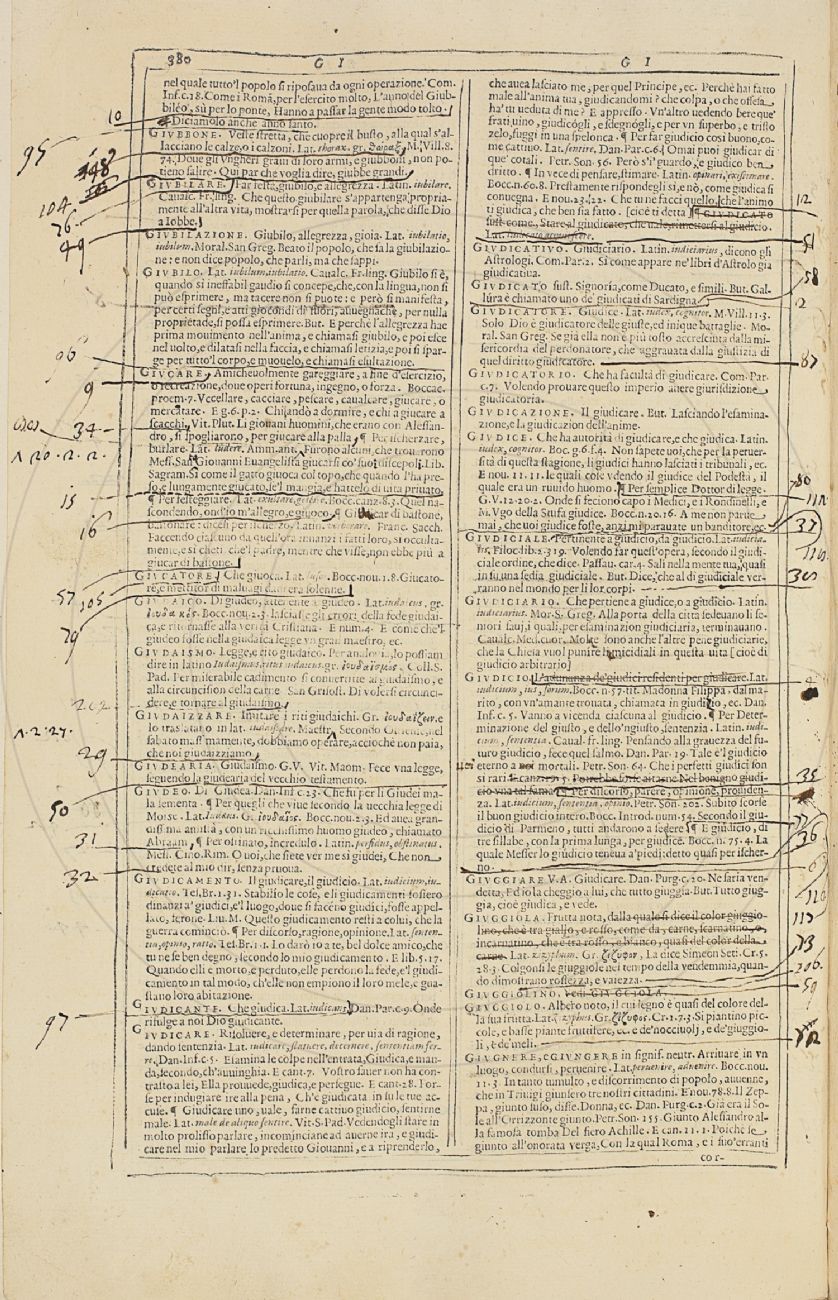 380
G I
G I
nel quale tutto'l popolo si riposaua da ogni operazione. Com.
Inf. c.28. Come i Romà, per l'esercito molto, L'anno del Giub-
bileo, sù per lo ponte, Hanno a passar la gente modo tolto.
Diciamolo anche anno santo.
GIVBBONE. Veste stretta, che cuopre il busto, alla qual s'al-
lacciano le calze, o i calzoni. Lat. thorax. gr. M. Vill. 8.
74. Doue gli Vngheri gran di loro armi, e giubboni, non po-
tieno salire. Qui par che voglia dire, giubbe grandi.
GIVBILARE. Far festa, giubilo, e allegrezza. Latin. iubilare.
Caualc. Fr. ling. Che questo giubilare s'appartenga propria-
mente all'altra vita, mostrasi per quella parola, che disse Dio
a Iobbe.
GIVBILAZIONE. Giubilo, allegrezza, gioia. Lat. iubilatio,
iubilum. Moral. San Greg. Beato il popolo, che sa la giubilazio-
ne: e non dice popolo, che parli, ma che sappi.
GIVBILO. Lat. iubilum, iubilatio. Caualc. Fr. ling. Giubilo si è,
quando si ineffabil gaudio si concepe, che, con la lingua, non si
può esprimere, ma tacere non si puote: e però si manifesta,
per certi segni, e atti giocondi di fuori, auuegnachè, per nulla
proprietade, si possa esprimere. But. E perchè l'allegrezza hae
prima mouimento nell'anima, e chiamasi giubilo, e poi esce
nel uolto, e dilatasi nella faccia, e chiamasi letizia, e poi si spar-
ge per tutto'l corpo, e muouelo, e chiamasi esultazione.
GIVCARE. Amicheuolmente gareggiare, a fine d'esercizio,
o recreazione, doue operi fortuna, ingegno, o forza. Boccac.
proem. 7. Vccellare, cacciare, pescare, caualcare, giucare, o
mercatare. E g.6. p.2. Chi andò a dormire, e chi a giucare a
scacchi. Vit. Plut. Li giouani huomini, che erano con Alessan-
dro, si spogliarono, per giucare alla palla. ¶ Per ischerzare,
burlare. Lat. ludere. Amm. ant. Furono alcuni, che trouarono
Mess. San Giouanni Euangelista giucarsi co' suoi discepoli. Lib.
Sagram. Si come il gatto giuoca col topo, che quando l'ha pre-
so, e lungamente giucato, se'l mangia, e hattelo di vita priuato.
¶ Per festeggiare. Lat. exultare, gestire. Bocc. canz. 8.3. Quel na-
scondendo, ond'io m'allegro, e giuoco. ¶ Giucar di bastone,
bastonare: dicesi per ischerzo. Latin. Franc. Sacch.
Faccendo ciascuno da quell'ora innanzi i fatti loro, si occulta-
mente, e si cheti, che'l padre, mentre che visse, non ebbe più a
giucar di bastone.
GIVCATORE. Che giuoca. Lat. lusor. Bocc. nou. 1.8. Giucato-
re, e mettitor di maluagi dadi era solenne.
GIVDAICO. Di giudeo, attenente a giudeo. Lat. iudaicus, gr.
Bocc. nou. 2.3. lasciasse gli errori della fede giudai-
ca, e ritornasse alla verità Cristiana. E num. 4. E come che'l
giudeo fosse nella giudaica legge vn gran maestro, ec.
GIVDAISMO. Legge, e rito giudaico. Per analogia, lo possiam
dire in latino Iudaismus, ritus iudaicus. gr. Coll. S.
Pad. Per miserabile cadimento si conuertitte al giudaismo, e
alla circuncision della carne. San Grisost. Di volersi circunci-
dere, e tornare al giudaismo.
GIVDAIZZARE. Imitare i riti giudaichi. Gr. e
lo traslatano in lat. iudaizare. Maestr. Secondo Oriente, nel
sabato massimamente, dobbiamo operare, acciochè non paia,
che noi giudaizziamo.
GIVDEARIA. Giudaismo. G.V. Vit. Maom. Fece vna legge,
seguendo la giudearia del vecchio testamento.
GIVDEO. Di Giudea. Dan. Inf. c.23. Che fu per li Giudei ma-
la sementa. ¶ Per quegli che viue secondo la uecchia legge di
Moise. Lat. Iudæus. Gr. Bocc. nou. 2.3. Ed auea gran-
dissima amistà, con un ricchissimo huomo giudeo, chiamato
Abraam. ¶ Per ostinato, incredulo. Latin. perfidus, obstinatus.
Mess. Cino. Rim. O uoi, che siete ver me sì giudei, Che non
credete al mio dir, senza pruoua.
GIVDICAMENTO. Il giudicare, il giudicio. Lat. iudicium, iu-
dicatio. Tes. Br. 1.31. Stabilio le cose, e li giudicamenti fossero
dinanzi a' giudici, e'l luogo, doue si faceno giudici, fosse appel-
lato, ferone. Liu. M. Questo giudicamento resti a colui, che la
guerra cominciò. ¶ Per discorso, ragione, opinione. Lat. senten-
tia, opinio, ratio. Tes. Br. 1.1. Lo darò io a te, bel dolce amico, che
tu ne se ben degno, secondo lo mio giudicamento. E lib. 5.17.
Quando elli è morto, e perduto, elle perdono la fede, e'l giudi-
camento in tal modo, ch'elle non empiono il loro mele, e gua-
stano loro abitazione.
GIVDICANTE. Che giudica. Lat. iudicans. Dan. Par. c.9. Onde
rifulge a noi Dio giudicante.
GIVDICARE. Risoluere, e determinare, per uia di ragione,
dando sentenzia. Lat. iudicare, statuere, decernere, sententiam fer-
re. Dan. Inf. c.5. Esamina le colpe nell'entrata, Giudica, e man-
da, secondo, ch'auuinghia. E cant. 7. Vostro sauer non ha con-
trasto a lei, Ella prouuede, giudica, e persegue. E cant. 28. For-
se per indugiare ire alla pena, Ch'è giudicata in su le tue ac-
cuse. ¶ Giudicare vno, uale, farne cattiuo giudicio, sentirne
male. Lat. male de aliquo sentire. Vit. S. Pad. Vedendogli stare in
molto prolisso parlare, incominciane ad auerne ira, e giudi-
care nel mio parlare lo predetto Giouanni, e a riprenderlo,
che auea lasciato me, per quel Principe, ec. Perchè hai fatto
male all'anima tua, giudicandomi? che colpa, o che offesa
ha' tu ueduta di me? E appresso. Vn'altro uedendo bere que'
frati uino, giudicògli, e sdegnògli, e per vn superbo, e tristo
zelo, fuggì in una spelonca. ¶ Per far giudicio così buono, co-
me cattiuo. Lat. sentire. Dan. Par. c.64. Omai puoi giudicar di
que' cotali. Petr. Son. 56. Però s'i' guardo, e giudico ben
dritto. ¶ In vece di pensare, stimare. Latin. opinari, existimare.
Bocc. n.60.8. Prestamente rispondegli sì, e nò, come giudica si
conuegna. E nou. 23.22. Che tu ne facci quello, che l'animo
ti giudica, che ben sia fatto. [cioè ti detta] ¶ GIVDICATO
sust. come, Stare al giudicato, che uale, rimettersi al giudicio.
Lat. iudicato acquiescere.
GIVDICATIVO. Giudiciario. Latin. iudiciarius, dicono gli
Astrologi. Com. Par. 2. Sì come appare ne' libri d'Astrologia
giudicatiua.
GIVDICATO sust. Signoria, come Ducato, e simili. But. Gal-
lura è chiamato uno de' giudicati di Sardigna.
GIVDICATORE. Giudice. Lat. iudex, cognitor. M. Vill. 11.3.
Solo Dio è giudicatore delle giuste, ed inique battaglie. Mo-
ral. San Greg. Se già ella non è più tosto accresciuta dalla mi-
sericordia del perdonatore, che aggrauata dalla giustizia di
quel diritto giudicatore.
GIVDICATORIO. Che ha facultà di giudicare. Com. Par.
c.7. Volendo prouare questo imperio auere giurisdizione
giudicatoria.
GIVDICAZIONE. Il giudicare. But. Lasciando l'esamina-
zione, e la giudicazion dell'anime.
GIVDICE. Che ha autorità di giudicare, e che giudica. Latin.
iudex, cognitor. Boc. g.6. f.4. Non sapete uoi, che per la peruer-
sità di questa stagione, li giudici hanno lasciati i tribunali, ec.
E nou. 11.11. le quali cose vdendo il giudice del Podestà, il
quale era un ruuido huomo. ¶ Per semplice Dottor di legge.
G.V. 12.20.2. Onde si feciono capo i Medici, e i Rondinelli, e
M. Vgo della Stufa giudice. Bocc. n.20.16. A me non parue
mai, che uoi giudice foste, anzi mi parauate un banditore, ec.
GIVDICIALE. Pertinente a giudicio, da giudicio. Lat. iudicia-
lis. Filoc. lib. 2.319. Volendo far quest'opera, secondo il giudi-
ciale ordine, che dice. Passau. car. 4. Sali nella mente tua, quasi
in su una sedia giudiciale. But. Dice, che al dì giudiciale ver-
ranno nel mondo per li lor corpi.
GIVDICIARIO. Che pertiene a giudice, o a giudicio. Latin.
iudiciarius. Mor. S. Greg. Alla porta della città sedeuano li se-
niori saui, i quali, per esaminazion giudiciaria, terminauano.
Caualc. Med. cuor. Molte sono anche l'altre pene giudiciarie,
che la Chiesa vuol punire homicidiali in questa uita [cioè di
giudicio arbitrario]
GIVDICIO. L'adunanza de' giudici residenti per giudicare. Lat.
iudicium, ius, forum. Bocc. n.57. tit. Madonna Filippa, dal ma-
rito, con vn'amante trouata, chiamata in giudicio, ec. Dan.
Inf. c.5. Vanno a vicenda ciascuna al giudicio. ¶ Per Deter-
minazion del giusto, e dello'ngiusto, sentenzia. Latin. iudi-
cium, sententia. Caual. fr. ling. Pensando alla grauezza del fu-
turo giudicio, fece quel salmo. Dan. Par. 19. Tale è'l giudicio
eterno a noi mortali. Petr. Son. 64. Che i perfetti giudici son
si rari. E canz. 19.5. Potrebbe forse aitarne Nel benigno giudi-
cio vna tal fama. ¶ Per discorso, parere, opinione, prouiden-
za. Lat. iudicium, sententia, opinio. Petr. Son. 202. Subito scorse
il buon giudicio intero. Bocc. Introd. num. 54. Secondo il giu-
dicio di Parmeno, tutti andarono a sedere. ¶ E giudicio, di
tre sillabe, con la prima lunga, per giudice. Bocc. n.75.4. La
quale Messer lo giudicio teneua a' piedi: detto quasi per ischer-
no.
GIVGGIARE. V.A. Giudicare. Dan. Purg. c.20. Ne saria ven-
detta, Ed io la cheggio a lui, che tutto giuggia. But. Tutto giug-
gia, cioè giudica, e vede.
GIVGGIOLA. Frutta nota, dalla quale si dice il color giuggio-
lino, che è tra giallo, e rosso, come da, carne, scarnatino, o,
incarnatino, che è tra rosso, e bianco, quasi del color della
carne. Lat. zizyphum. Gr. La dice Simeon Seti. Cr. 5.
28.3. Colgonsi le giuggiole nel tempo della vendemmia, quan-
do dimostrano rossezza, e vaiezza.
GIVGGIOLINO. Vedi GIVGGIOLA.
GIVGGIOLO. Albero noto, il cui legno è quasi del colore del-
la sua frutta. Lat. zizyphus. Gr. Cr. 1.7.3. Si piantino pic-
cole, e basse piante fruttifere, ec. e de' nocciuoli, e de' giuggio-
li, e de' meli.
GIVGNERE, e GIVNGERE in signif. neutr. Arriuare in vn
luogo, condursi, peruenire. Lat. peruenire, aduenire. Bocc. nou.
11.3. In tanto tumulto, e discorrimento di popolo, auuenne,
che in Triuigi giunsero tre nostri cittadini. E nou. 78.8. Il Zep-
pa, giunto suso, disse. Donna, ec. Dan. Purg. c.2. Già era il So-
le all'Orrizzonte giunto. Petr. Son. 155. Giunto Alessandro al-
la famosa tomba Del fiero Achille. E can. 11.1. Poichè se
giunto all'onorata verga, Con la qual Roma, e i suo' erranti
cor-
10
95
148
104
76
49
66
9
34
15
16
57
105
79
202
29
50
31
32
97
112
51
58
2
87
80
37
36